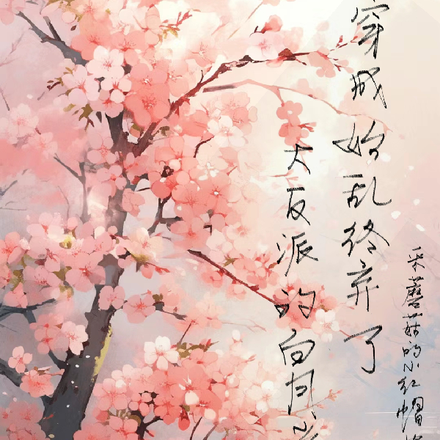 穿成始乱终弃了
大反派的白月
采蘑菇的小红帽